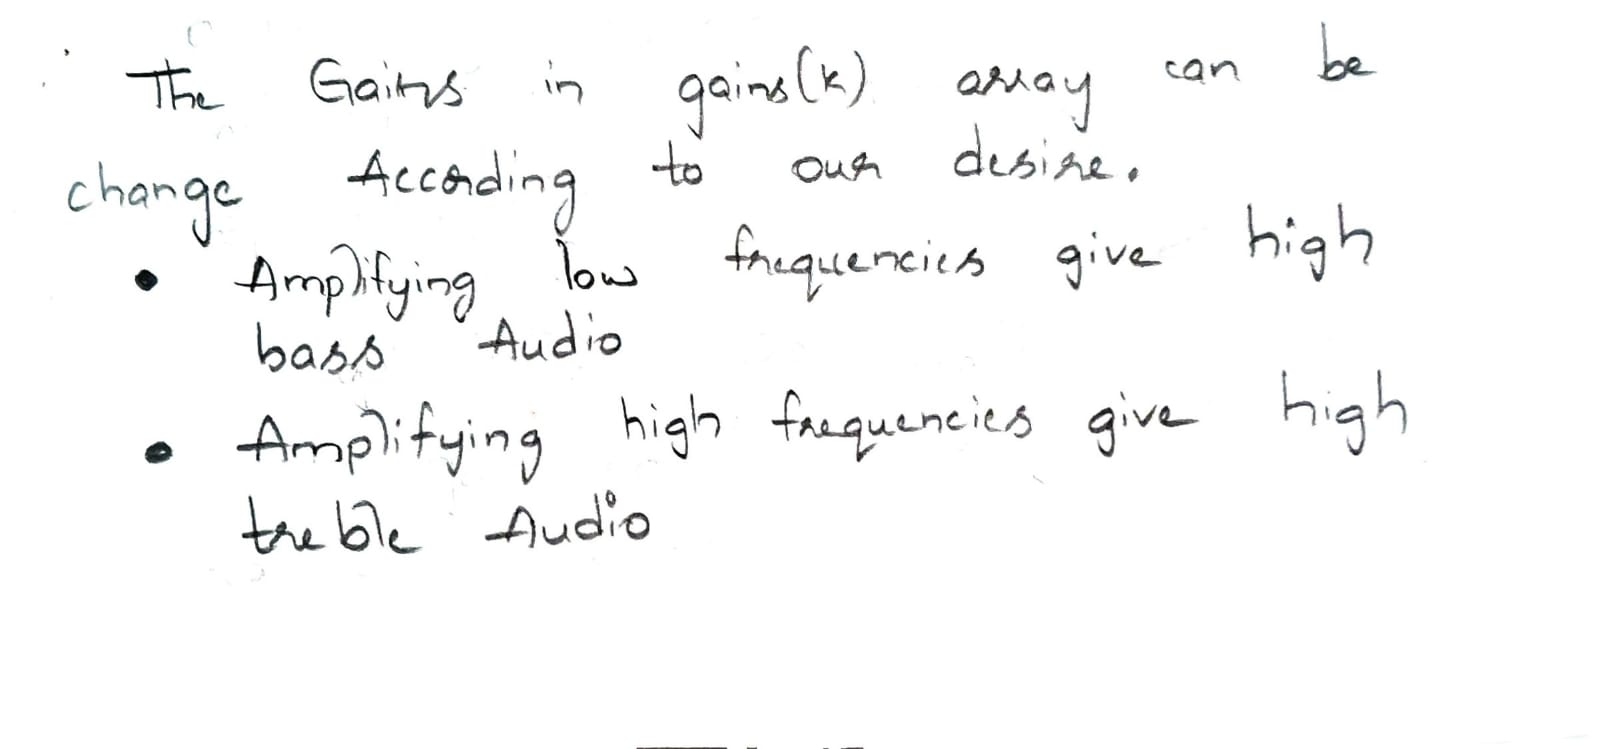 The Gains in gains(k) array can be
change According to our desire.
• Amplifying low frequencies give high
bass Audio
• Amplifying high frequencies give high
treble Audio